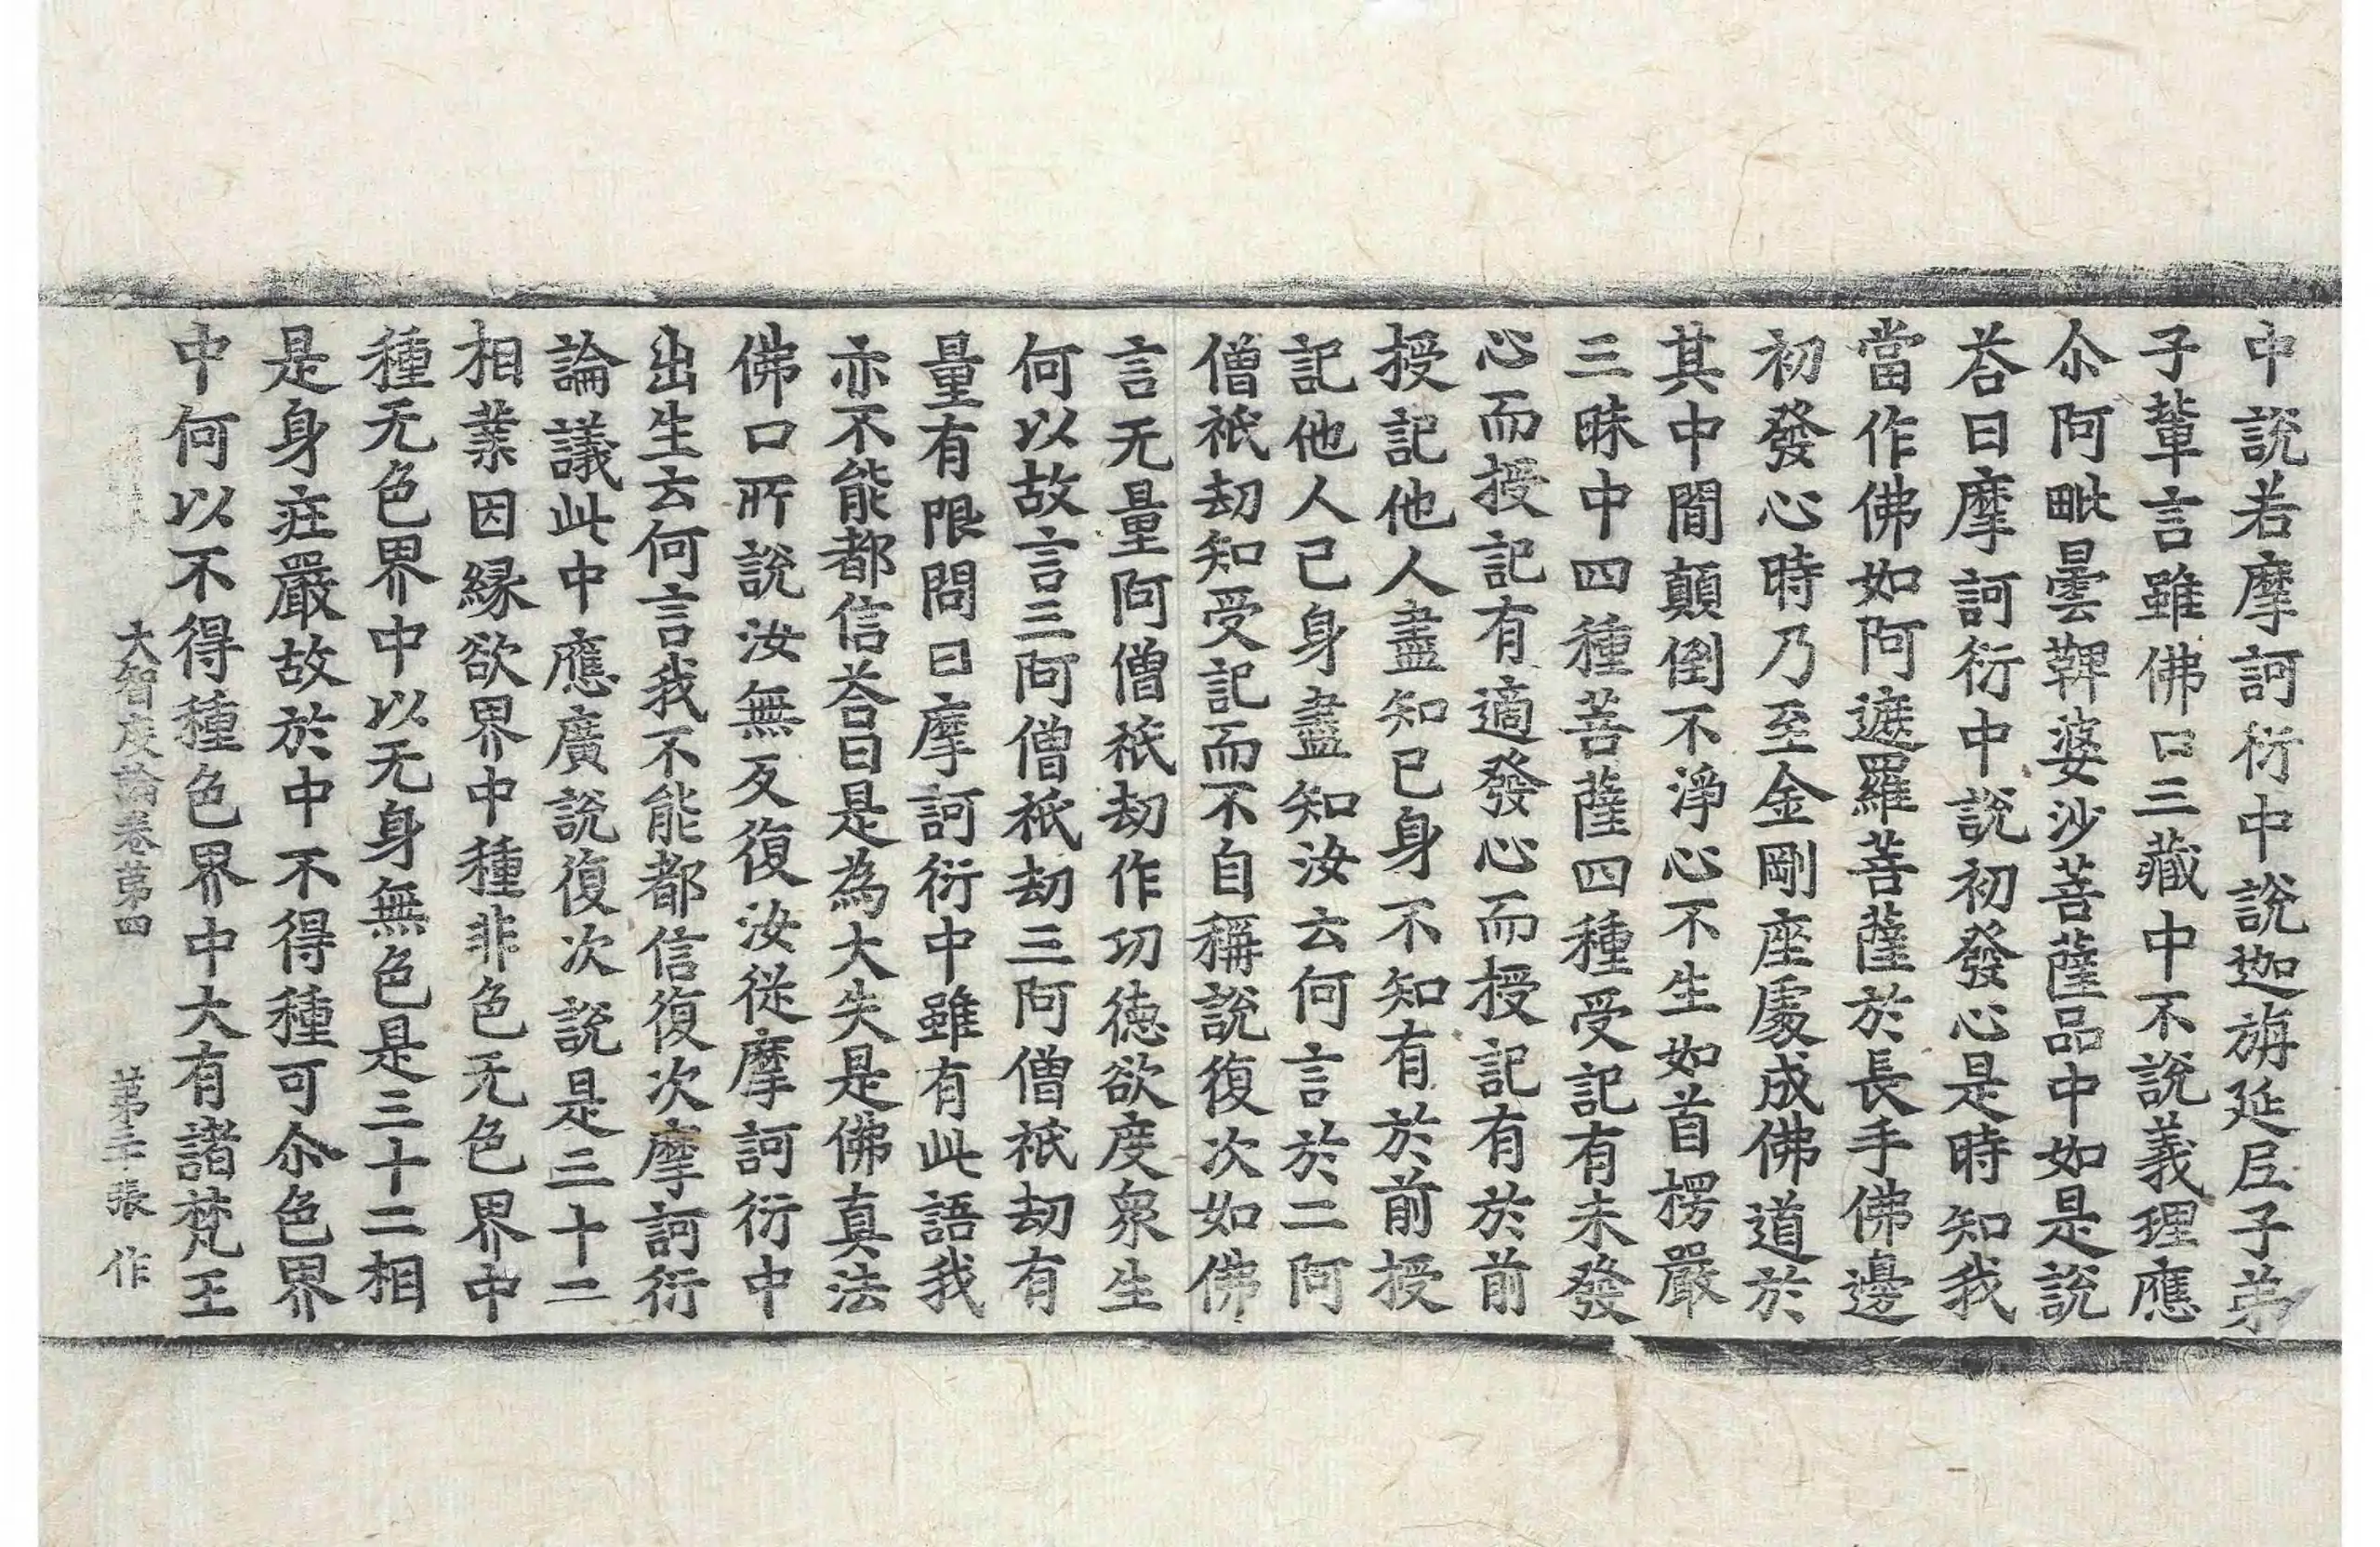 中說若摩訶衍中說迦旃延𡰱子弟
子輩言雖佛口三藏中不說義理應
尒阿毗曇鞞婆沙菩薩品中如是說
荅曰摩訶衍中說初發心是時知我
當作佛如阿遮羅菩薩於長手佛邊
初發心時乃至金剛座處成佛道於
其中閒顛倒不淨心不生如首楞嚴
三昧中四種菩薩四種受記有未發
心而授記有適發心而授記有於前
授記他人盡知己身不知有於前授
記他人己身盡知汝云何言於二阿
僧祇劫知受記而不自稱說復次如佛
言无量阿僧祇劫作功德欲度衆生
何以故言三阿僧祇劫三阿僧祇劫有
量有限問曰摩訶衍中雖有此語我
亦不能都信荅曰是為大失是佛真法
佛口所說汝無反復汝從摩訶衍中
出生云何言我不能都信復次摩訶衍
論議此中應廣說復次說是三十二
相業因緣欲界中種非色无色界中
種无色界中以无身無色是三十二相
是身疘嚴故於中不得種可尒色界
中何以不得種色界中大有諸梵王
大智度論卷第四 第二十張 作